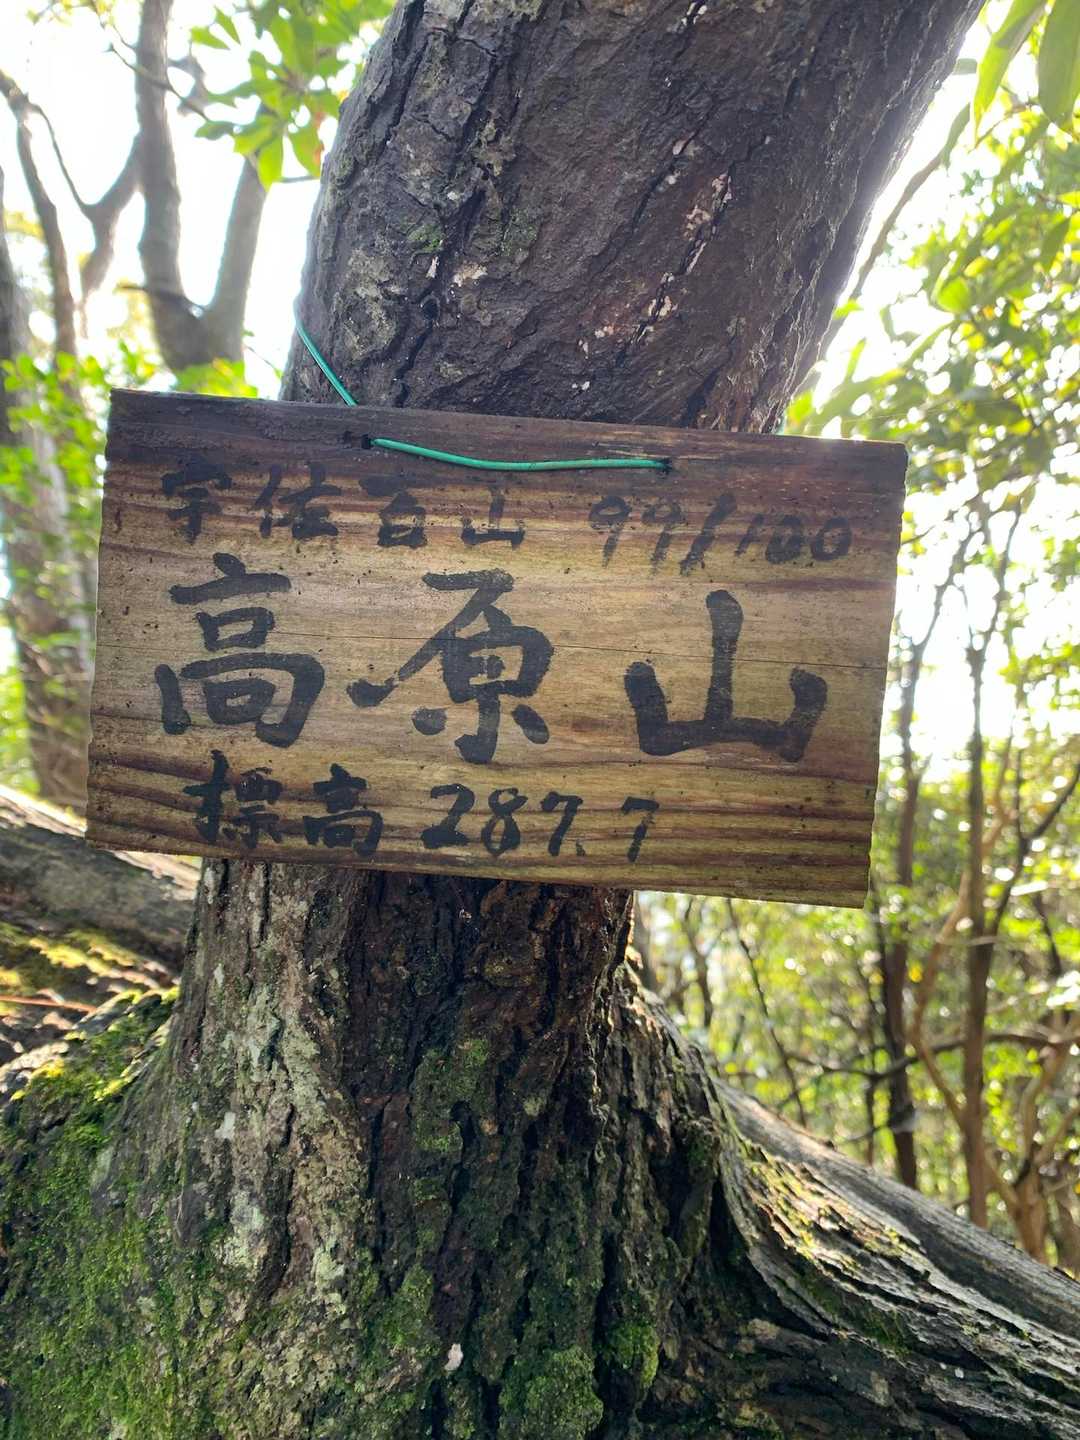 宇佐百山 99/100
高原山
標高 287.7